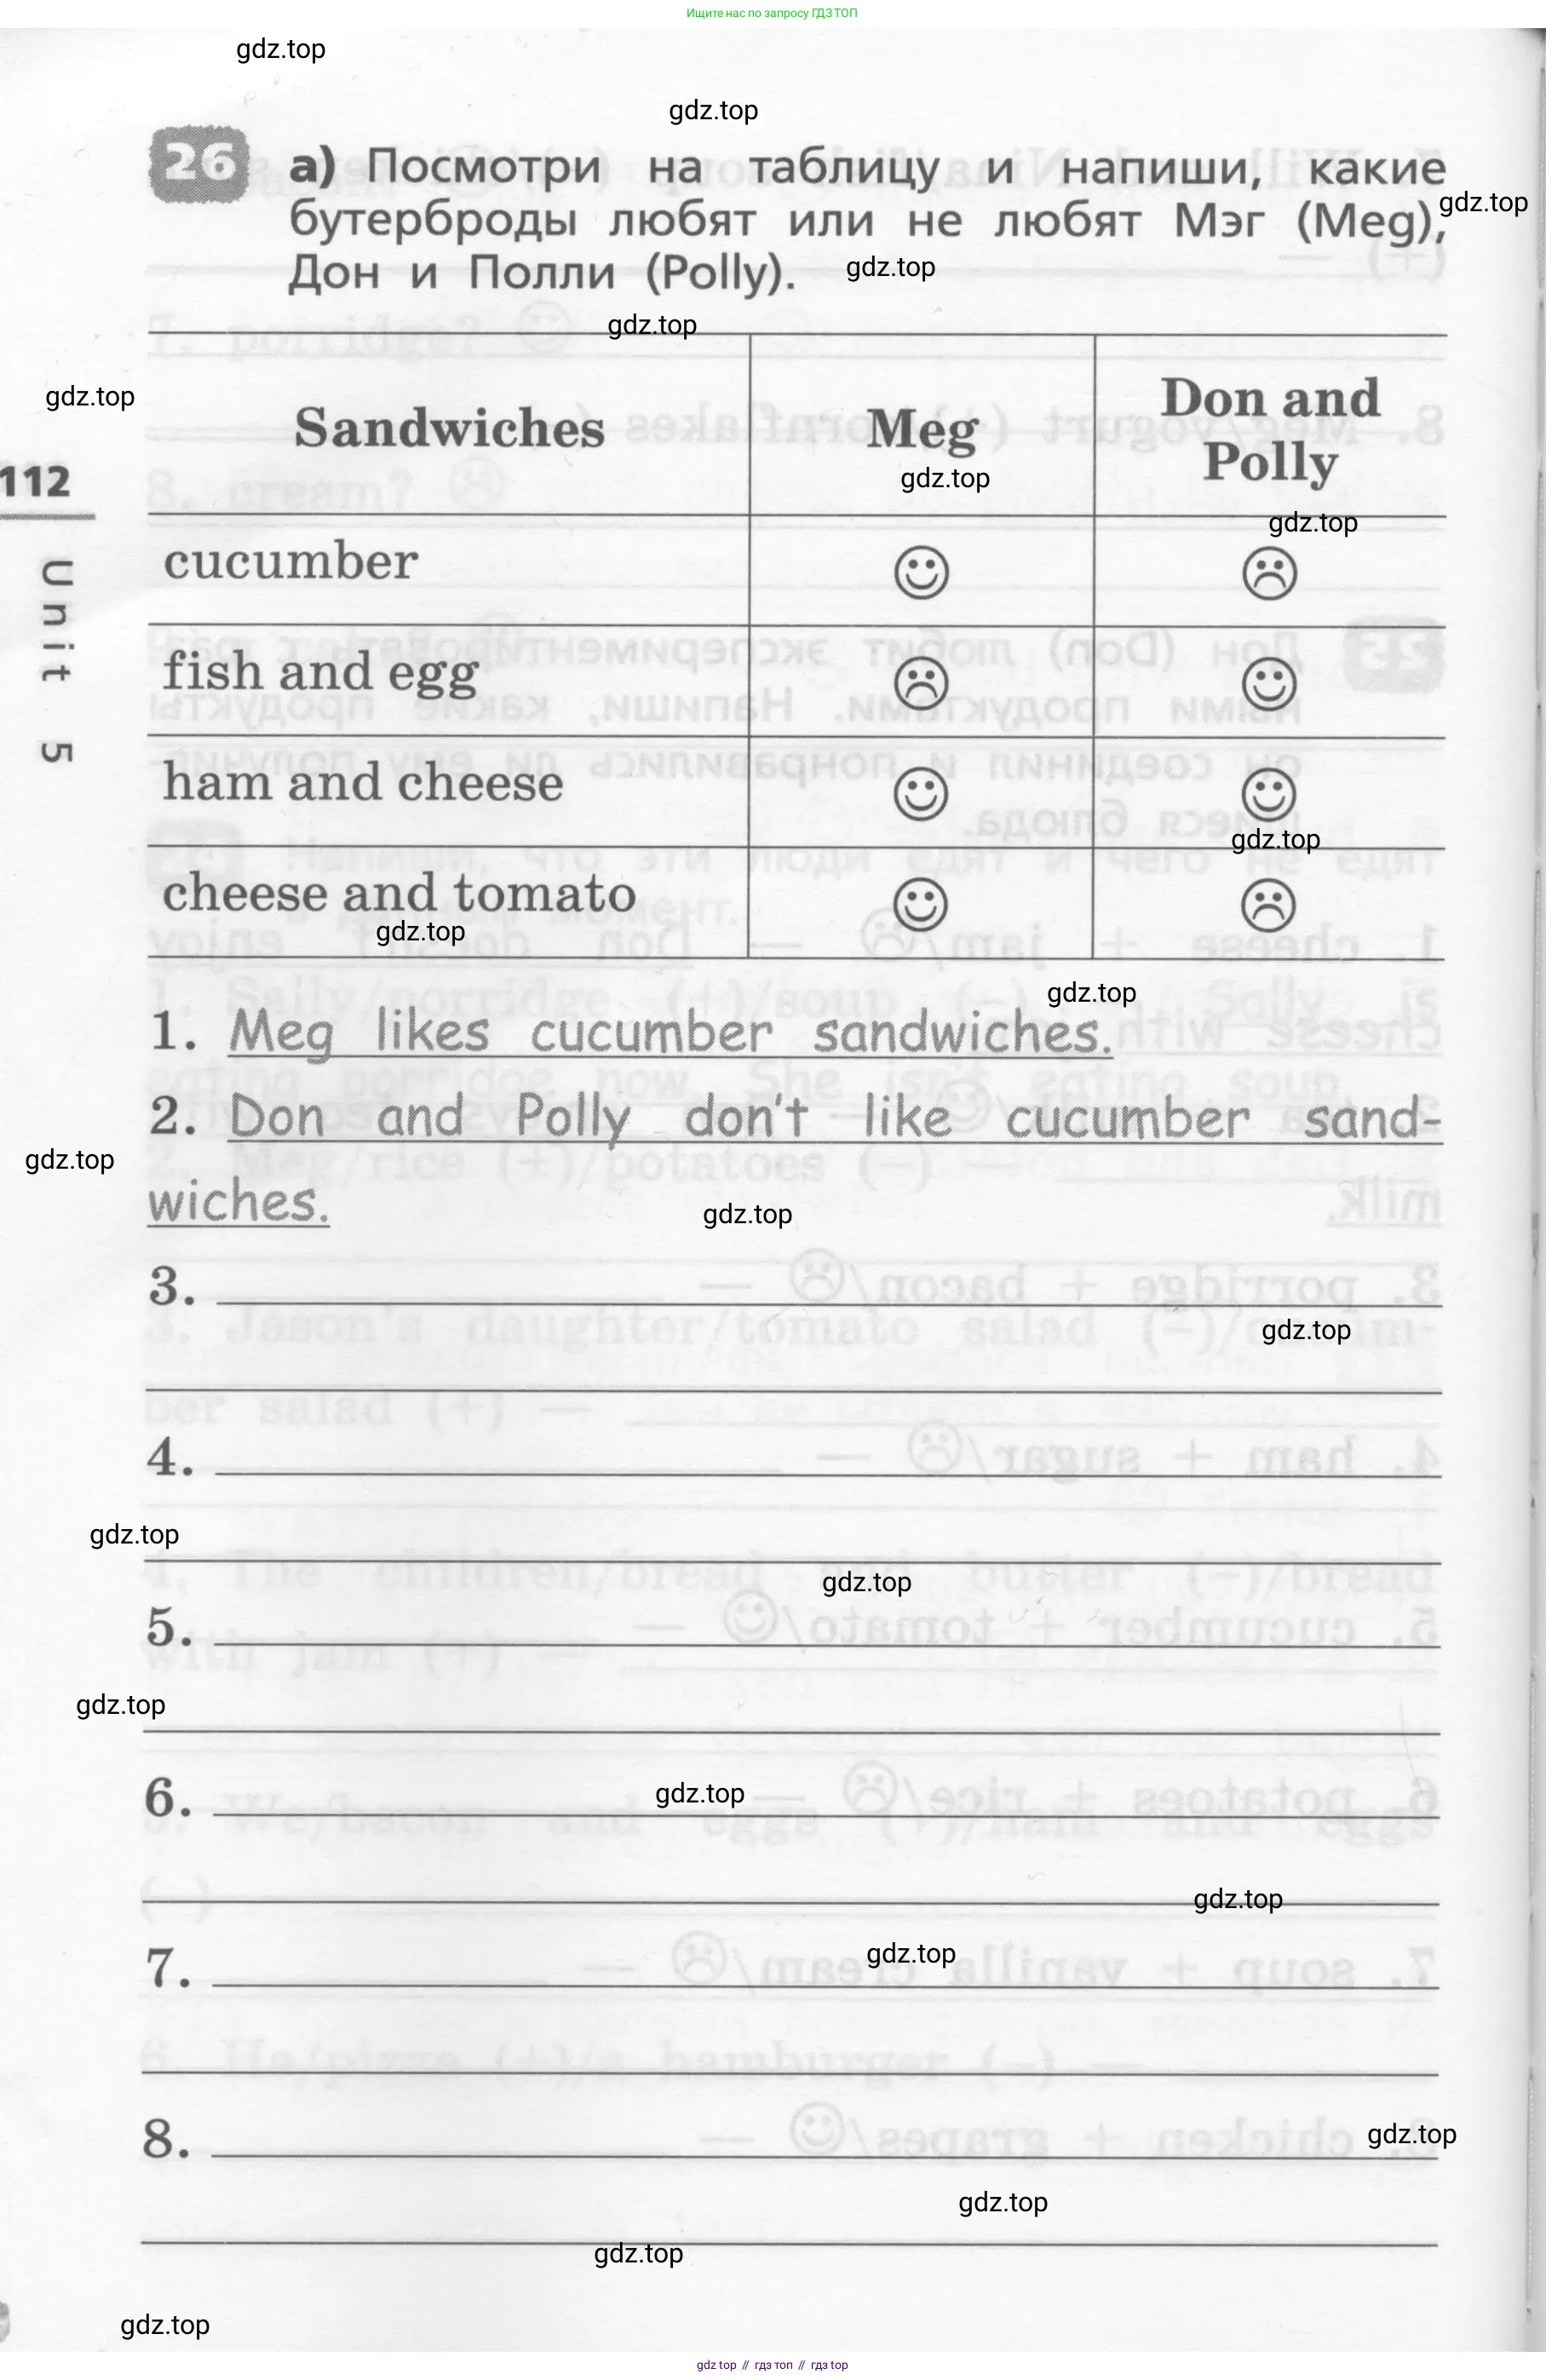 Ищите нас по запросу ГДЗ ТОП
gdz.top
gdz.top
26 а) Посмотри на таблицу и напиши, какие
gdz.top
бутерброды любят или не любят Мэг (Meg),
Дон и Полли (Polly).
gdz.top
gdz.top
gdz.top
Sandwiches Meg Don and Polly
112
gdz.top
gdz.top
Unit 5
cucumber
fish and egg
ham and cheese
gdz.top
cheese and tomato
gdz.top
gdz.top
1. Meg likes cucumber sandwiches.
2. Don and Polly don't like cucumber sand-
gdz.top
wiches.
gdz.top
3.
gdz.top
4.
gdz.top
gdz.top
5.
gdz.top
6.
gdz.top
gdz.top
7.
gdz.top
8.
gdz.top
gdz.top
gdz.top
gdz.top
gdz top // гдз топ // гдз top